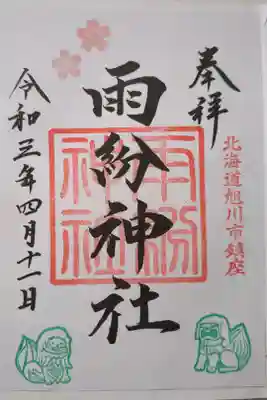 奉拝
北海道旭川市鎮座
雨紛神社
雨紛神社
令和三年四月十一日